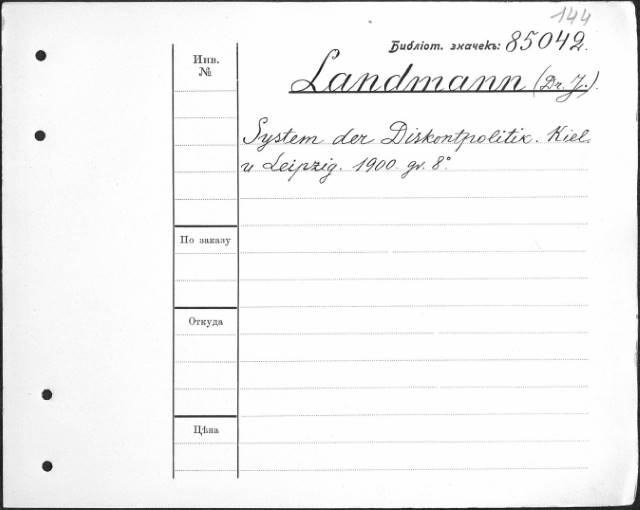 144
Библіот. значекъ: 85042.
Инв.
№
Landmann (Dr. J.).
System der Diskontpolitik. Kiel.
u Leipzig. 1900. gr. 8°.
По заказу
Откуда
Цѣна